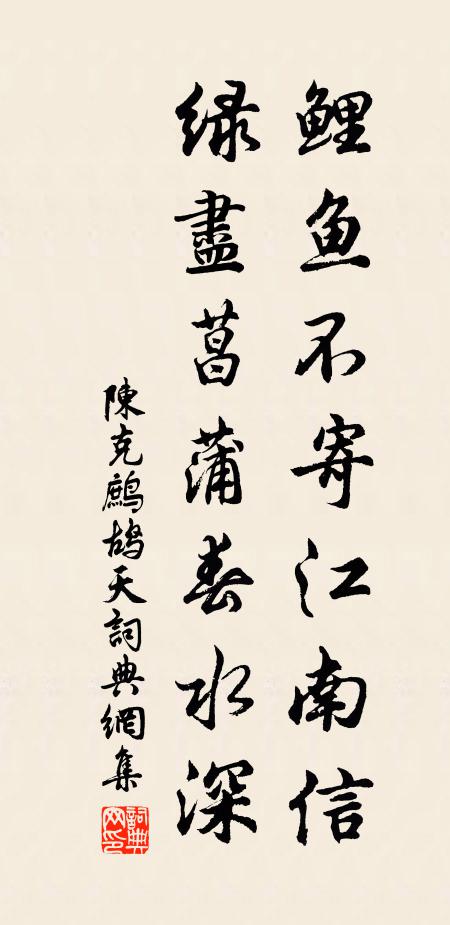 鲤鱼不寄江南信
绿盡菖蒲春水深
陳克鷓鴣天詞典網集
詞典网印